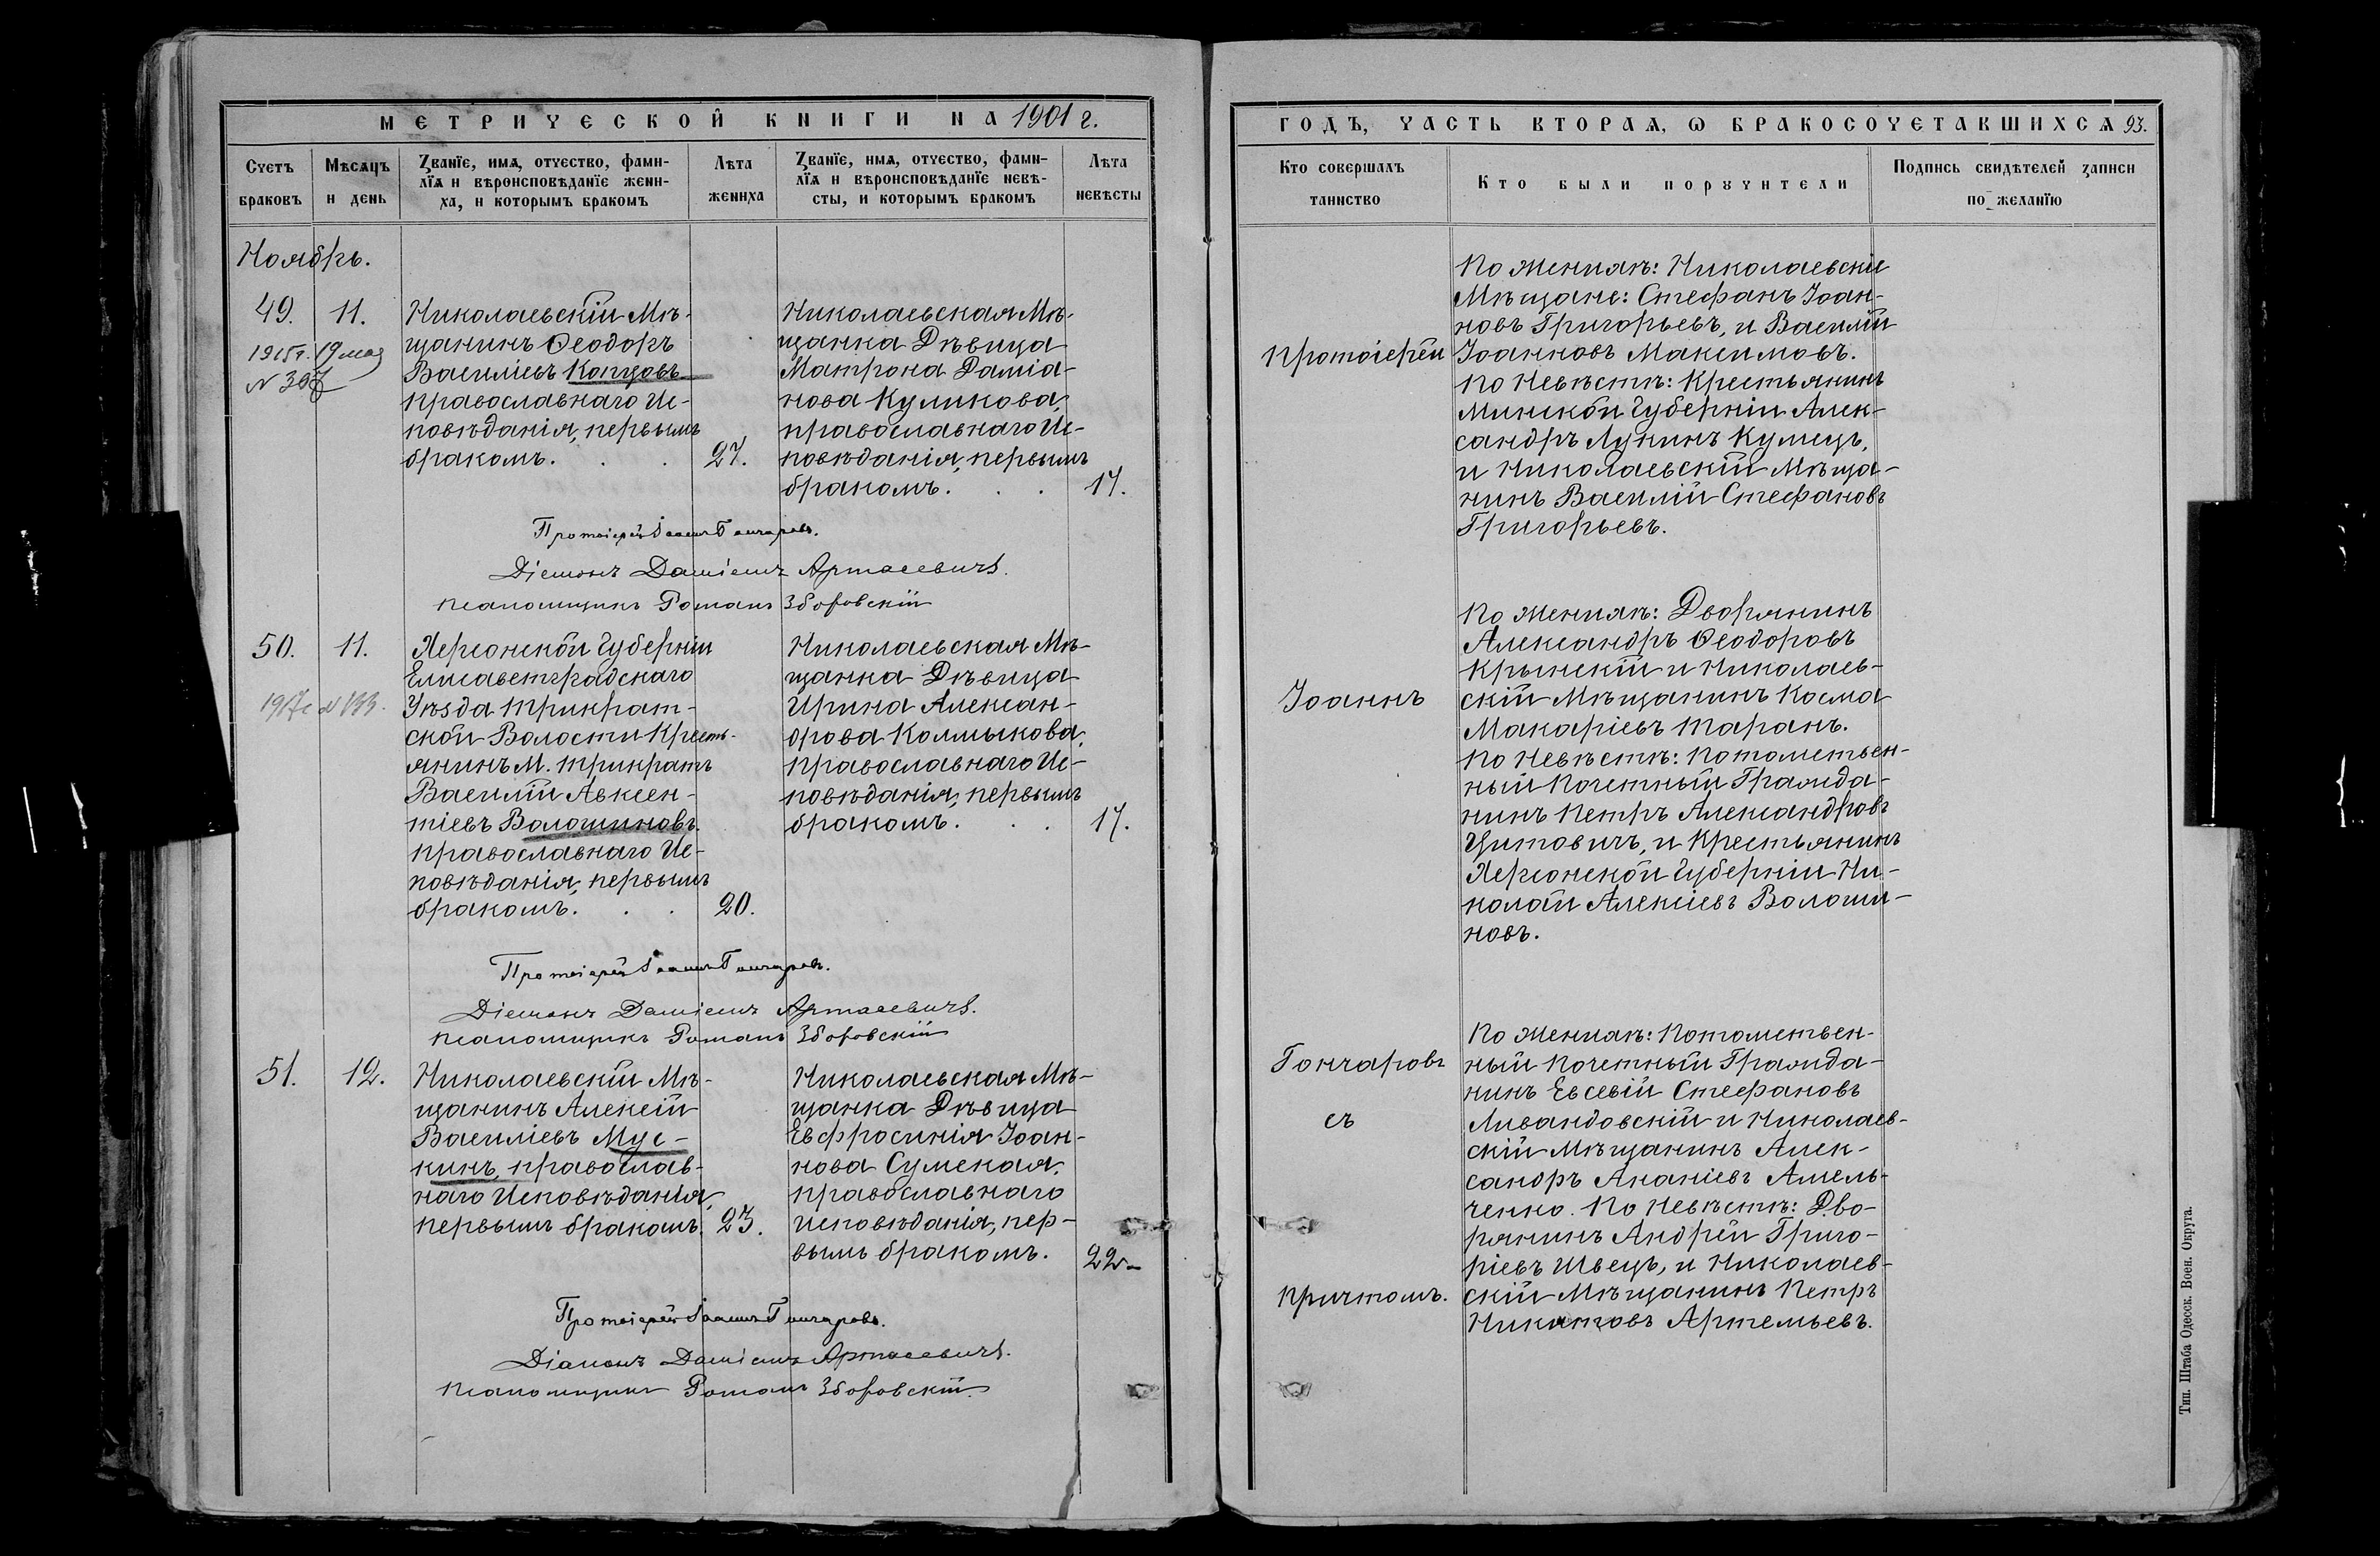 МЕТРИЧЕСКОЙ КНИГИ НА 1901 г.
Счетъ браковъ
Мѣсяцъ и день
Званїе, имѧ, отчество, фами-
лїѧ и вѣроисповѣданїе жени-
ха, и которымъ бракомъ
Лѣта жениха
Званїе, имѧ, отчество, фами-
лїѧ и вѣроисповѣданїе невѣ-
сты, и которымъ бракомъ
Лѣта невѣсты
Ноябрь.
49.
11.
1915 г. 19 мая
Николаевскій Мѣ-
щанинъ Ѳеодоръ
Василіевъ Копцовъ
православнаго Ис-
повѣданія, первымъ
бракомъ. . . 27.
Николаевская Мѣ-
щанка Дѣвица
Матрона Даміа-
нова Куликова,
православнаго Ис-
повѣданія, первымъ
бракомъ. . . 17.
Протоіерей Іоаннъ Гончаровъ.
Діаконъ Даміанъ Артасевичъ.
Псаломщикъ Романъ Зборовскій
50.
11.
Херсонской Губерніи
Елисаветградскаго
Уѣзда Трикрат-
ской Волости Кресть-
янинъ М. Трикратъ
Василій Авксен-
тіевъ Волошиновъ.
православнаго Ис-
повѣданія, первымъ
бракомъ. . . 20.
Николаевская Мѣ-
щанка Дѣвица
Ирина Алексан-
дрова Колмыкова,
православнаго Ис-
повѣданія, первымъ
бракомъ. . . 17.
Протоіерей Іоаннъ Гончаровъ.
Діаконъ Даміанъ Артасевичъ.
Псаломщикъ Романъ Зборовскій
51.
12.
Николаевскій Мѣ-
щанинъ Алексій
Василіевъ Мус-
кинъ, православ-
наго Исповѣданія,
первымъ бракомъ. 23.
Николаевская Мѣ-
щанка Дѣвица
Евфросинія Іоан-
нова Сумская,
православнаго
Исповѣданія, пер-
вымъ бракомъ. 22
Протоіерей Іоаннъ Гончаровъ.
Діаконъ Даміанъ Артасевичъ.
Псаломщикъ Романъ Зборовскій.
ГОДЪ, ЧАСТЬ ВТОРАѦ, Ѡ БРАКОСОЧЕТАВШИХСѦ 93.
Кто совершалъ таинство
Кто были поручители
Подпись свидѣтелей записи
по желанїю
Протоіерей
Іоаннъ
Гончаровъ
съ
причтомъ.
По Женихѣ: Николаевскіе
Мѣщане: Стефанъ Іоан-
новъ Григорьевъ, и Василій
Іоанновъ Максимовъ.
По Невѣстѣ: Крестьянинъ
Минской Губерніи Алек-
сандръ Лукинъ Кулецъ,
и Николаевскій Мѣща-
нинъ Василій Стефановъ
Григорьевъ.
По Женихѣ: Дворянинъ
Александръ Ѳеодоровъ
Крынскій и Николаев-
скій Мѣщанинъ Косма
Макаріевъ Таранъ.
По Невѣстѣ: Потомствен-
ный Почетный Гражда-
нинъ Петръ Александровъ
Цитовичъ, и Крестьянинъ
Херсонской Губерніи Ни-
колай Алексіевъ Волоши-
новъ.
По Женихѣ: Потомствен-
ный Почетный Гражда-
нинъ Евсевій Стефановъ
Ливандовскій и Николаев-
скій Мѣщанинъ Алек-
сандръ Ананіевъ Амель-
ченко. По Невѣстѣ: Дво-
рянинъ Андрей Григо-
ріевъ Швецъ, и Николаев-
скій Мѣщанинъ Петръ
Никитовъ Артемьевъ.
Тип. Штаба Одесск. Воен. Округа.